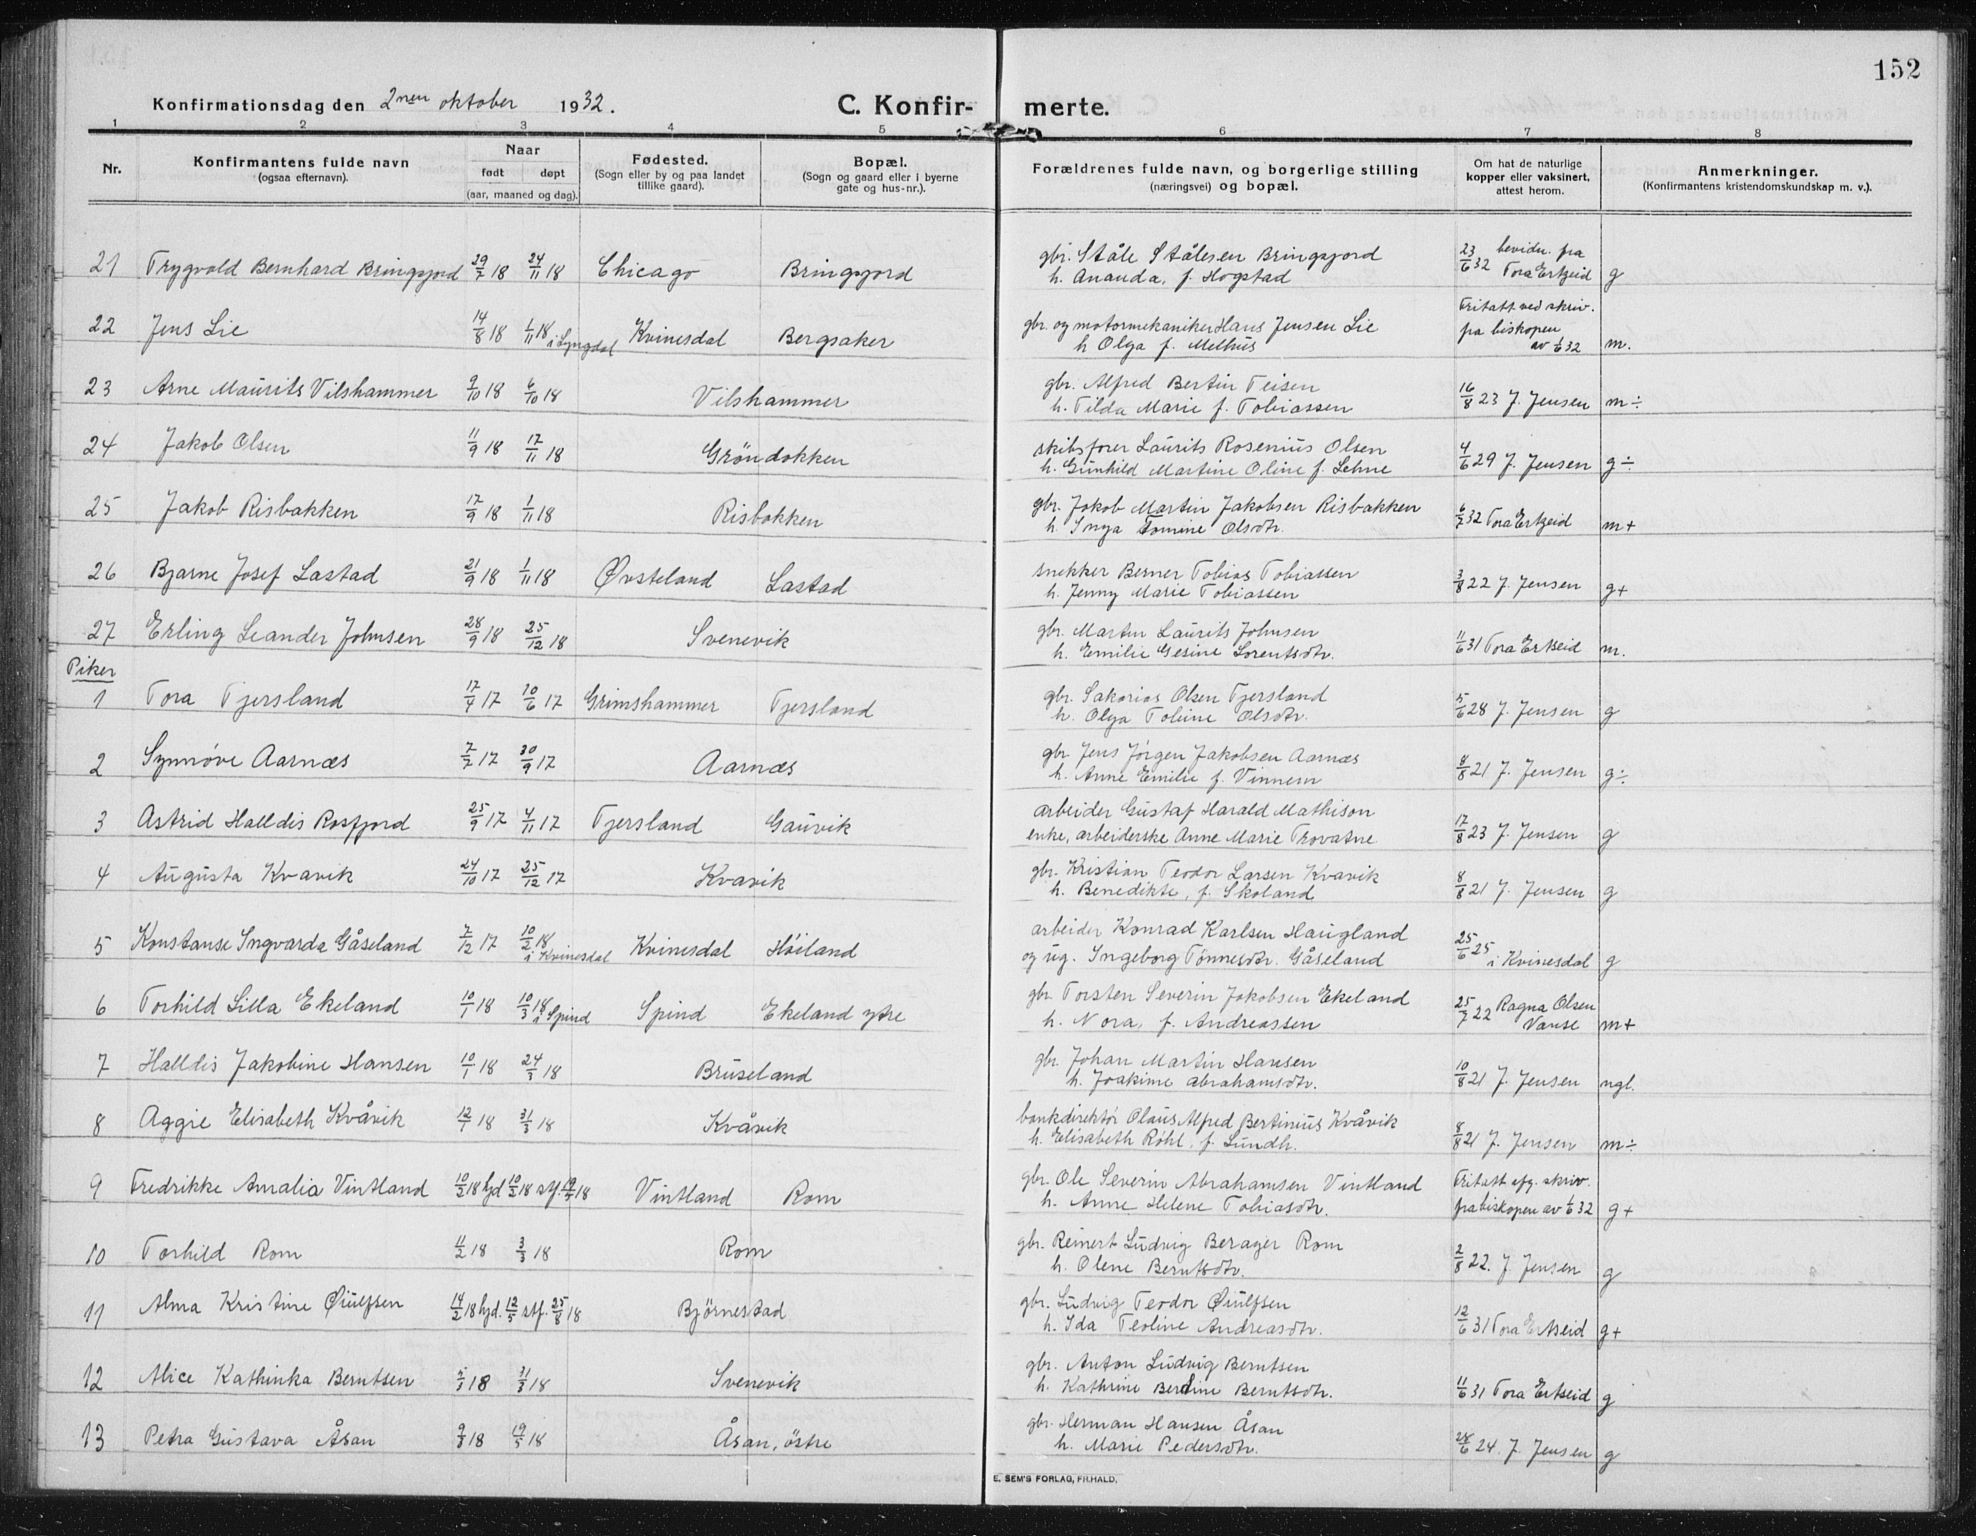 152
Konfirmationsdag den 2nen oktober 1932.
C. Konfir- merte.
1 2 3 4 5 6 7 8
Nr. Konfirmantens fulde navn (ogsaa efternavn). Naar født døpt (aar, maaned og dag). Fødested. (Sogn eller by og paa landet tillike gaard). Bopæl. (Sogn og gaard eller i byerne gate og hus-nr.). Forældrenes fulde navn, og borgerlige stilling (næringsvei) og bopæl. Om hat de naturlige kopper eller vaksinert, attest herom. Anmerkninger. (Konfirmantens kristendomskundskap m. v.).
21 Trygvald Bernhard Bringsjord 29/7 18 24/11 18 Chicago Bringsjord gbr. Ståle Stålesen Bringsjord 23/6 32 bevidn. fra
h. Ananda, f. Hogstad Tora Ertzeid g
22 Jens Lie 14/8 18 1/11 18 i Lyngdal Kvinesdal Bergsaker gbr. og motormekaniker Hans Jensen Lie Fritatt ved skriv.
h Olga f. Melhus fra biskopen av 1/6 32 m.
23 Arne Maurits Vilshammer 9/10 18 6/10 18 Vilshammer gbr. Alfred Bertin Teisen
h. Tilda Marie f. Tobiassen 16/8 23 J. Jensen m÷
24 Jakob Olsen 11/9 18 17/11 18 Gröndokken skibsfører Laurits Rosenius Olsen
h. Gunhild Martine Oline f. Lehne 4/6 29 J. Jensen g÷
25 Jakob Risbakken 17/9 18 1/11 18 Risbakken gbr. Jakob Martin Jakobsen Risbakken
h. Inga Tomine Olsdtr. 6/7 32 Tora Ertzeid m+
26 Bjarne Josef Lastad 21/9 18 1/11 18 Øvsteland Lastad snekker Berner Tobias Tobiassen
h. Jenny Marie Tobiassen 3/8 22 J. Jensen g+
27 Erling Leander Johnsen 28/9 18 25/12 18 Svenevik gbr. Martin Laurits Johnsen
h. Emilie Gesine Lorentsdtr. 11/6 31 Tora Ertzeid m.
Piker
1 Tora Tjersland 17/4 17 10/6 17 Grimshammer Tjersland gbr. Sakarias Olsen Tjersland
h. Olga Tobine Olsdtr. 5/6 28 J. Jensen g
2 Synnøve Aarnæs 7/7 17 30/9 17 Aarnæs gbr. Jens Jörgen Jakobsen Aarnæs
h. Anne Emilie f. Vinnem 8/8 21 J. Jensen g÷
3 Astrid Halldis Rosfjord 25/9 17 4/11 17 Tjersland Gauvik arbeider Gustaf Harald Mathison
enke, arbeiderske Anne Marie Trovatne 17/8 23 J. Jensen g
4 Augusta Kvavik 24/10 17 25/12 17 Kvavik gbr. Kristian Teodor Larsen Kvavik
h. Benedikte, f. Skoland 8/8 21 J. Jensen g
5 Konstanse Ingvarda Gåseland 7/12 17 10/2 18 i Kvinesdal Kvinesdal Høiland arbeider Konrad Karlsen Haugland
og ug. Ingeborg Tønnesdtr. Gåseland 25/6 25 i Kvinesdal g
6 Torhild Lilla Ekeland 10/1 18 10/3 18 i Spind Spind Ekeland ytre gbr. Torsten Severin Jakobsen Ekeland
h. Nora, f. Andreassen 25/7 22 Ragna Olsen Vanse m+
7 Halldis Jakobine Hansen 10/1 18 24/3 18 Bruseland gbr. Johan Martin Hansen
h. Joakime Abrahamsdtr. 10/8 21 J. Jensen ngl.
8 Aggie Elisabeth Kvåvik 12/1 18 31/3 18 Kvåvik bankdirektør Olaus Alfred Bertinius Kvåvik
h. Elisabeth Röhl f. Lundh. 8/8 21 J. Jensen m÷
9 Fredrikke Amalia Vintland 10/2 18 hjd 10/2 18 stf. 19/5 18 Vintland Rom gbr. Ole Severin Abrahamsen Vintland Fritatt efg. skriv.
h. Anne Helene Tobiasdtr. fra biskopen av 1/6 32 g+
10 Torhild Rom 11/2 18 3/3 18 Rom gbr. Reinert Ludvig Berager Rom
h. Olene Berntsdtr. 2/8 22. J Jensen g
11 Alma Kristine Øiulfsen 14/2 18 hjd. 12/5 stf. 25/8 18 Bjørnestad gbr. Ludvig Teodor Øiulfsen
h. Ida Teoline Andreasdtr. 12/6 31 Tora Ertzeid g+
12 Alice Kathinka Berntsen 2/3 18 31/3 18 Svenevik gbr. Anton Ludvig Berntsen
h. Kathrine Berdine Berntsdtr. 11/6 31 Tora Ertzeid g
13 Petra Gustava Åsan 9/3 18 19/5 18 Åsan, östre gbr. Herman Hansen Åsan
h. Marie Pedersdtr. 28/6 24. J. Jensen g
E. SEM'S FORLAG, FR.HALD.